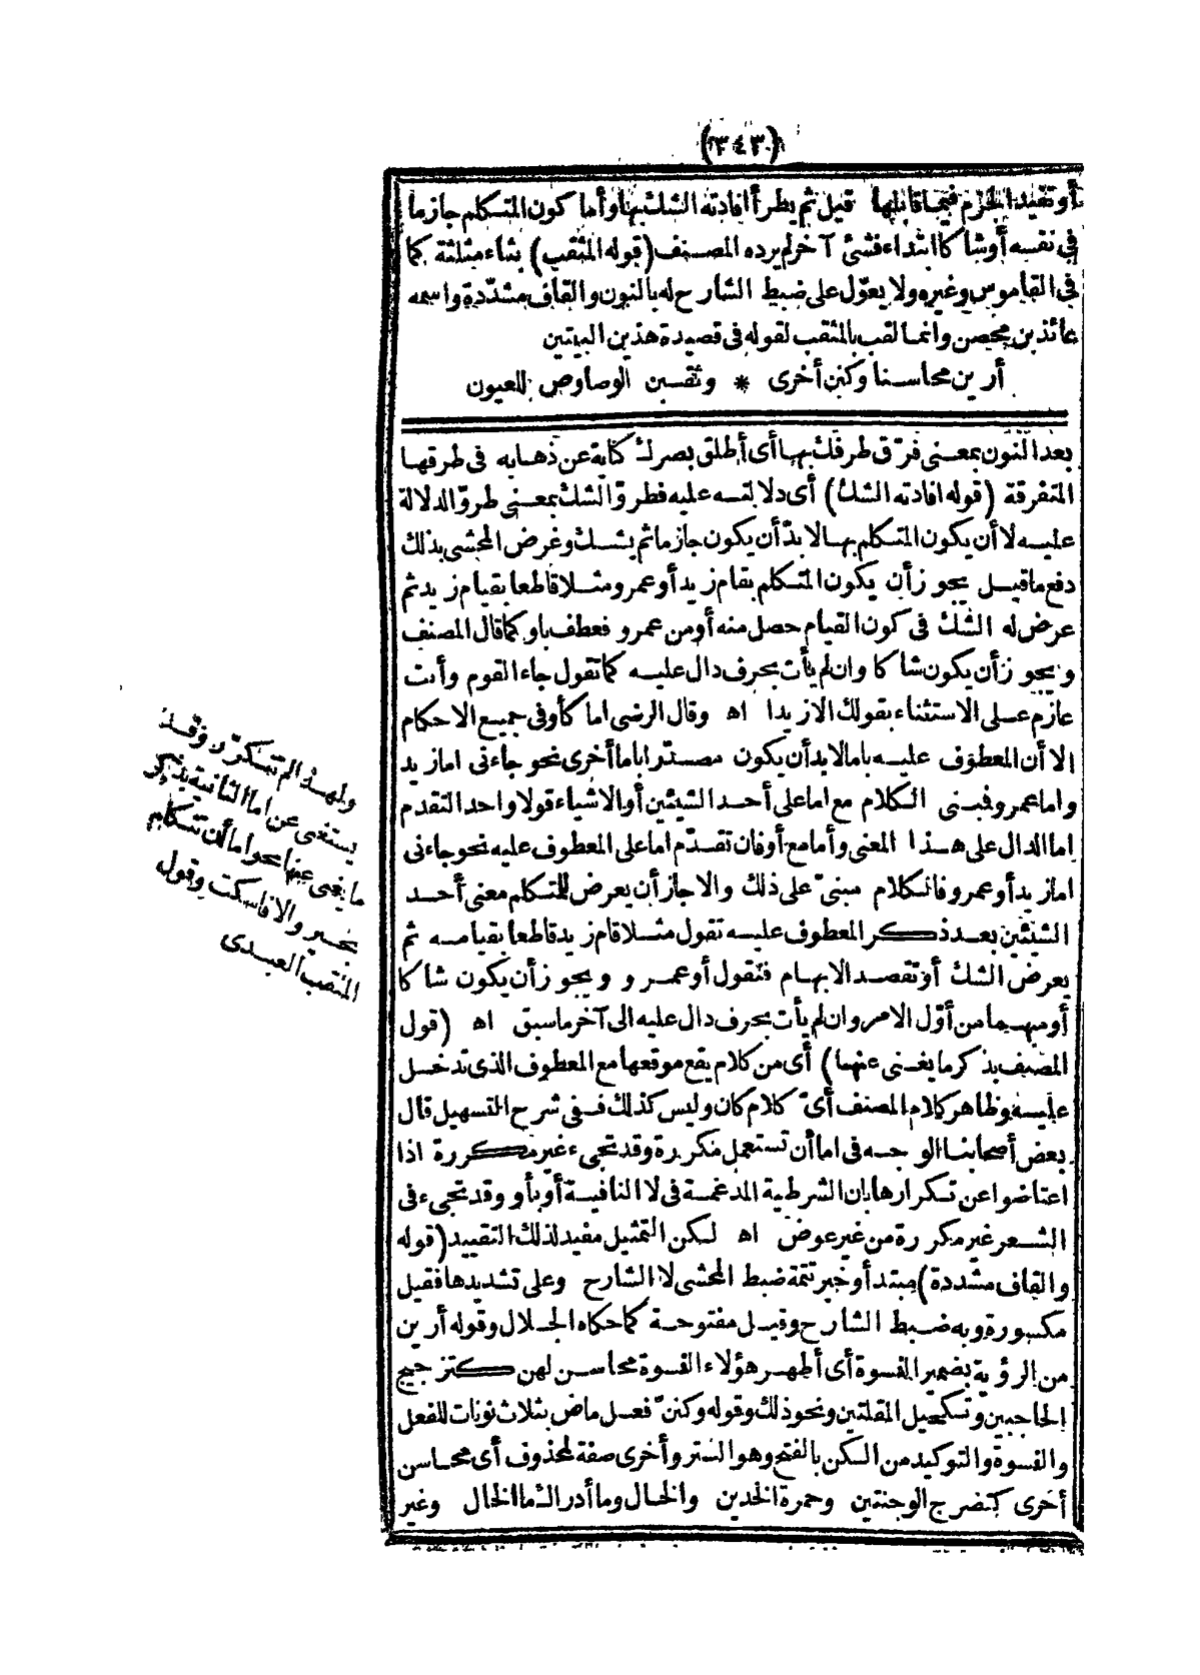 (٣٤٣)
أو تفيد الجزم فيما قابلها قيل ثم يطرأ افادته الشك بها وأما كون المتكلم جازما
في نفسه أو شاكا ابتداء فشئ آخر لم يرده المصنف (قوله المثقب) بثاء مثلثة كما
في القاموس وغيره ولا يعوّل على ضبط الشارح له بالنون والقاف مشدّدة واسمه
عائذ بن محصن وانما لقب بالمثقب لقوله فى قصيدة هذين البيتين
أرين محاسنا وكنن أخرى * وثقبن الوصاوص للعيون
بعد النون بمعنى فرّق طرفك بها أى أطلق بصرك كناية عن ذهابه فى طرقها
المتفرقة (قوله افادته الشك) أى دلالته عليه فطروّ الشك بمعنى طروّ الدلالة
عليه لا أن يكون المتكلم بها لا بدّ أن يكون جازما ثم يشك وغرض المحشى بذلك
دفع ما قيل يجوز أن يكون المتكلم بقام زيد أو عمرو مثلا قاطعا بقيام زيد ثم
عرض له الشك فى كون القيام حصل منه أو من عمرو فعطف باو كما قال المصنف
ويجوز أن يكون شاكا وان لم يأت بحرف دال عليه كما تقول جاء القوم وأنت
عازم على الاستثناء بقولك الا زيدا اه وقال الرضى اما كأو فى جميع الاحكام
الا أن المعطوف عليه باما لا بد أن يكون مصدّرا باما أخرى نحو جاءنى اما زيد
واما عمرو فبنى الكلام مع اما على أحد الشيئين أو الاشياء قولا واحدا لتقدم
اما الدال على هذا المعنى وأما مع أو فان تقدّم اما على المعطوف عليه نحو جاءنى
اما زيد أو عمرو فالكلام مبنىّ على ذلك والا جاز أن يعرض للمتكلم معنى أحد
الشيئين بعد ذكر المعطوف عليه تقول مثلا قام زيد قاطعا بقيامه ثم
يعرض الشك أو تقصد الابهام فتقول أو عمرو ويجوز أن يكون شاكا
أو مبهما من أوّل الامر وان لم يأت بحرف دال عليه الى آخر ما سبق اه (قول
المصنف بذكر ما يغنى عنها) أى من كلام يقع موقعها مع المعطوف الذى تدخل
عليه وظاهر كلام المصنف أىّ كلام كان وليس كذلك ففى شرح التسهيل قال
بعض أصحابنا الوجه فى اما أن تستعمل مكررة وقد تجىء غير مكررة اذا
اعتاضوا عن تكرارها بان الشرطية المدغمة فى لا النافية أو بأو وقد تجىء فى
الشعر غير مكررة من غير عوض اه لكن التمثيل مفيد لذلك التقييد (قوله
والقاف مشددة) مبتدأ وخبر تتمة ضبط المحشى لا الشارح وعلى تشديدها فقيل
مكسورة وبه ضبط الشارح وقيل مفتوحة كما حكاه الجلال وقوله أرين
من الرؤية بضمير النسوة أى أظهر هؤلاء النسوة محاسن لهن كتزجيج
الحاجبين وتكحيل المقلتين ونحو ذلك وقوله وكننّ فعل ماض بثلاث نونات للفعل
والنسوة والتوكيد من الكن بالفتح وهو الستر وأخرى صفة لمحذوف أى محاسن
أخرى كتضرج الوجنتين وحمرة الخدين والخال وما أدراك ما الخال وغير
ولهذا لم تتكرّر وقد
يستغنى عن اما الثانية بذكر
ما يغنى عنها نحو اما أن تتكلم
بخير والا فاسكت وقول
المثقب العبدى